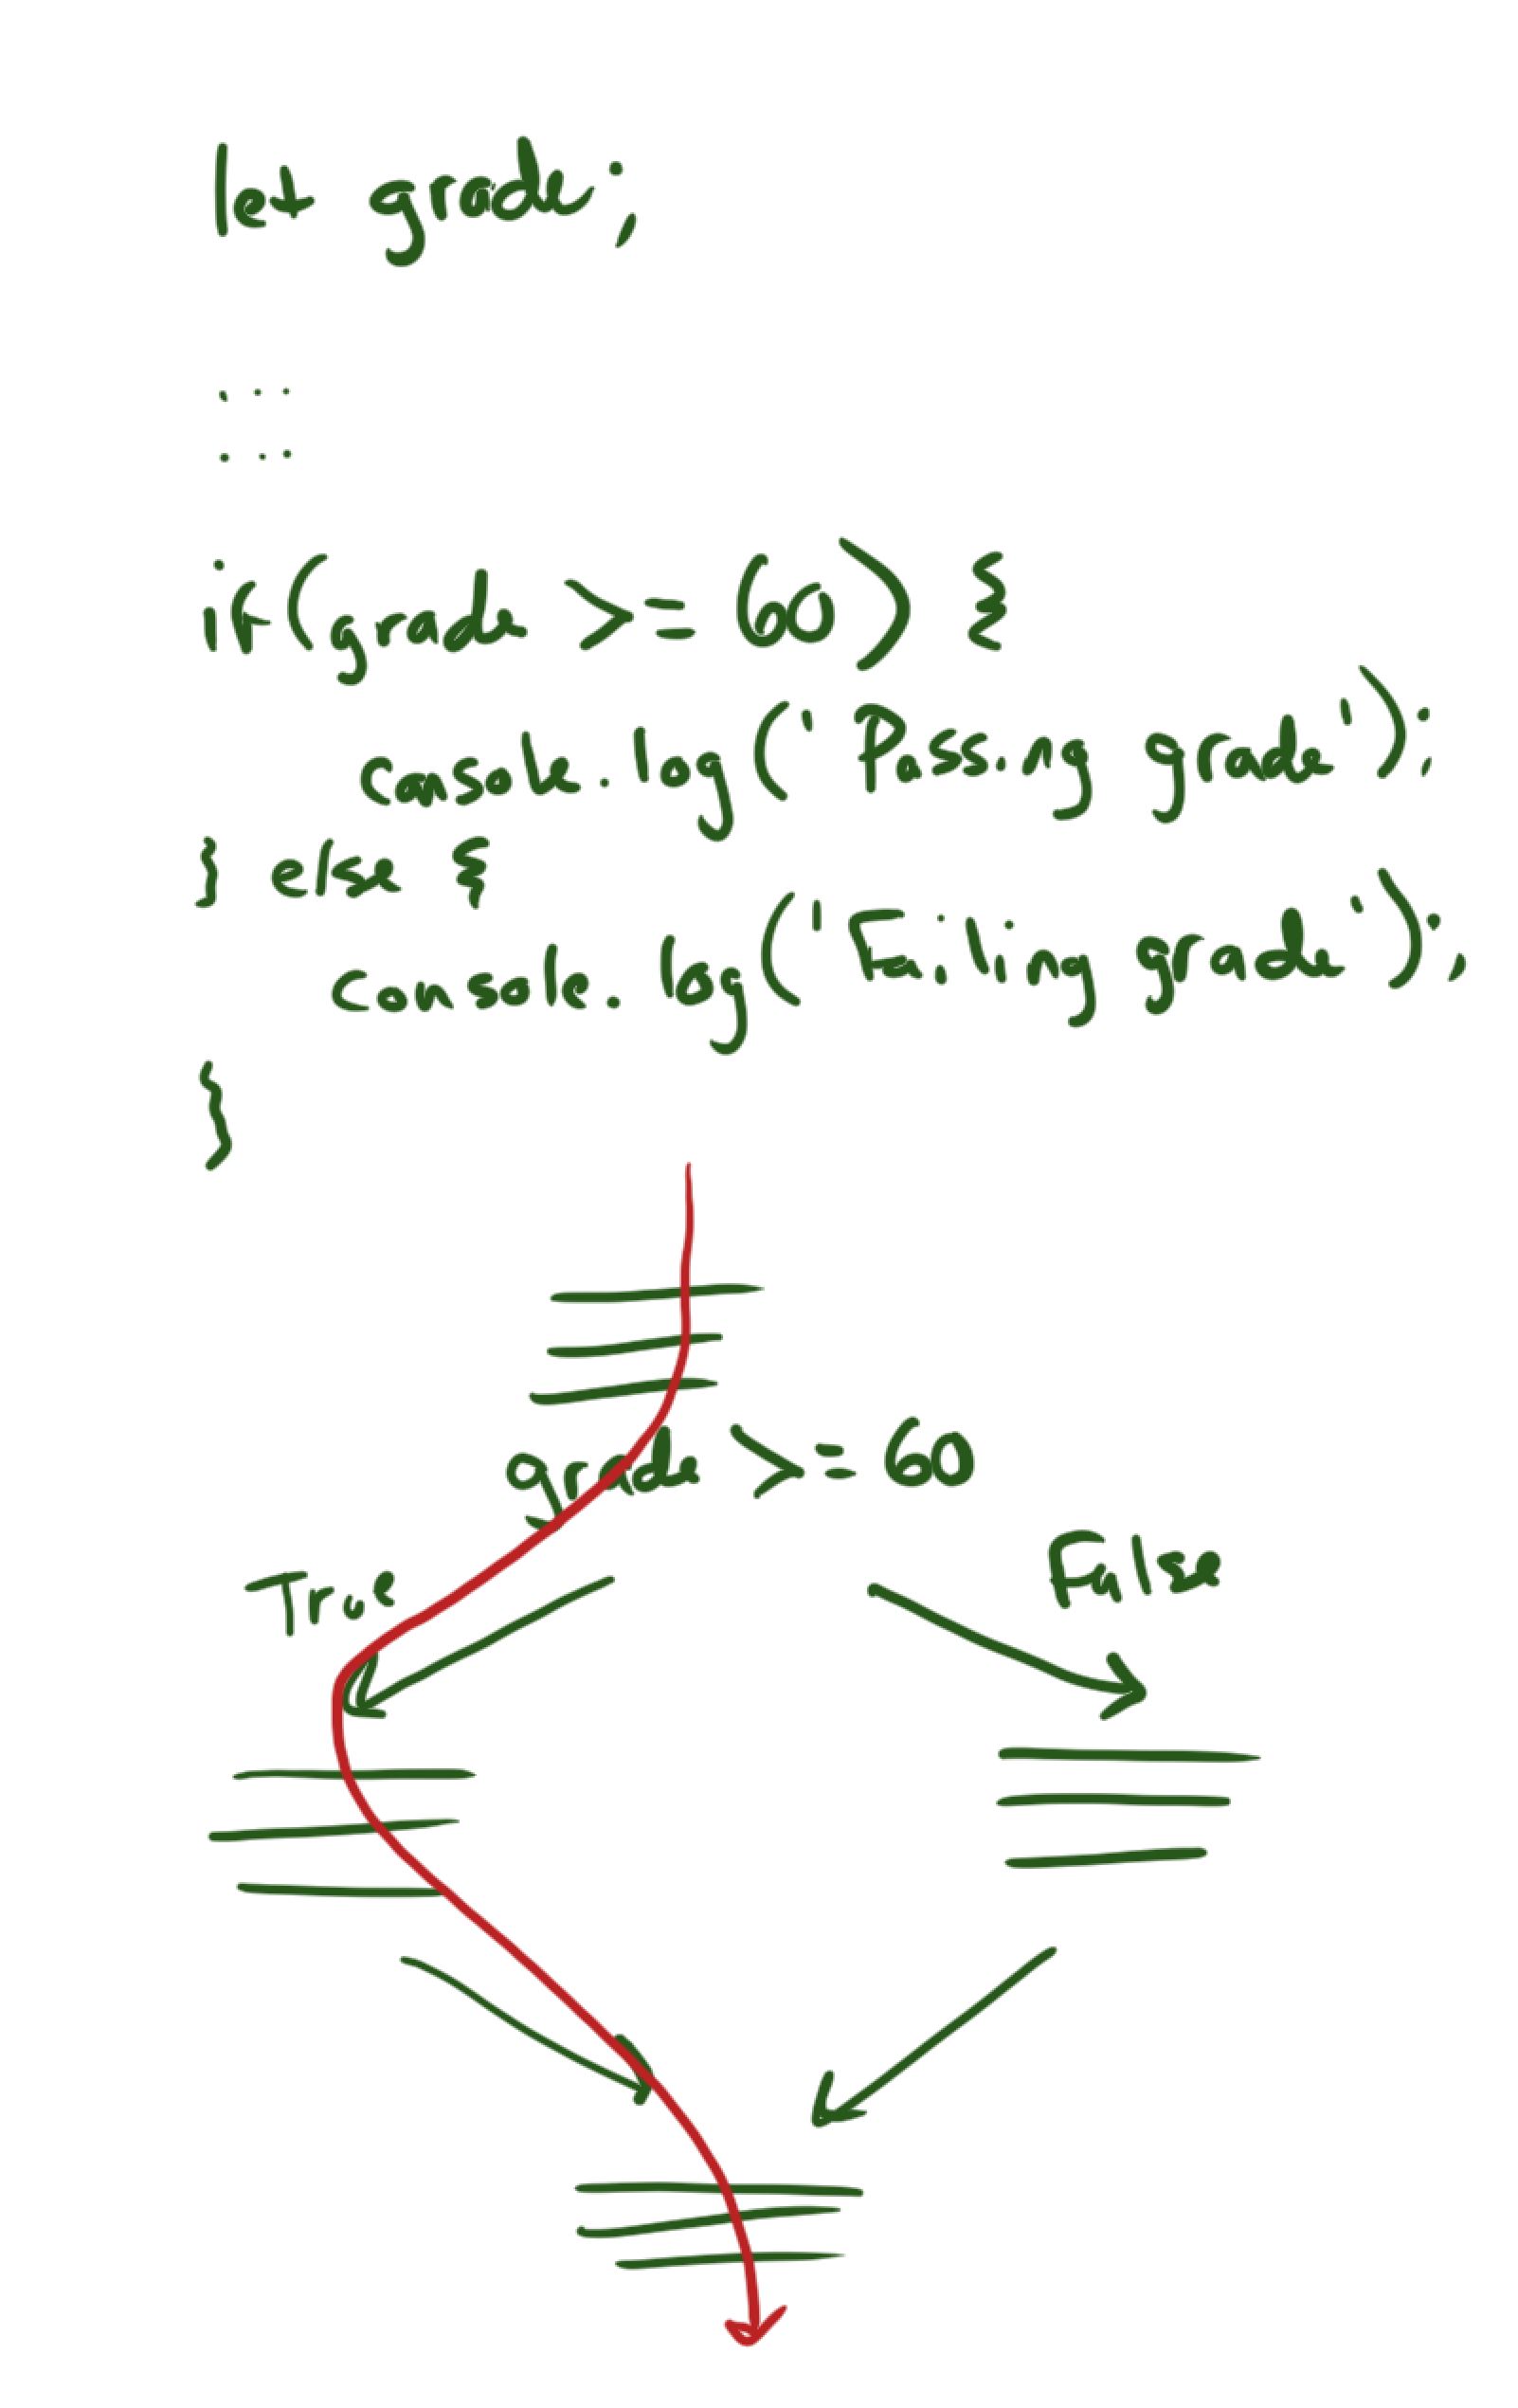 let grade;
...
...
if(grade >= 60) {
console.log('Passing grade');
} else {
console.log('Failing grade');
}
grade >= 60
True
False